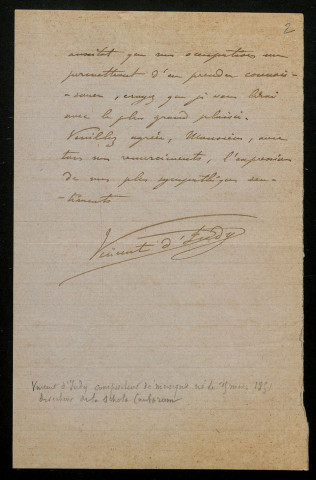 2
aussitôt que mes occupations me
permettront d'en prendre connais-
-sance, croyez que je vous lirai
avec le plus grand plaisir.
Veuillez agréer, Monsieur, avec
tous mes remerciements, l'expression
de mes plus sympathiques sen-
-timents
Vincent d'Indy
Vincent d'Indy compositeur de musique né le mars 185
directeur de la Schola Cantorum